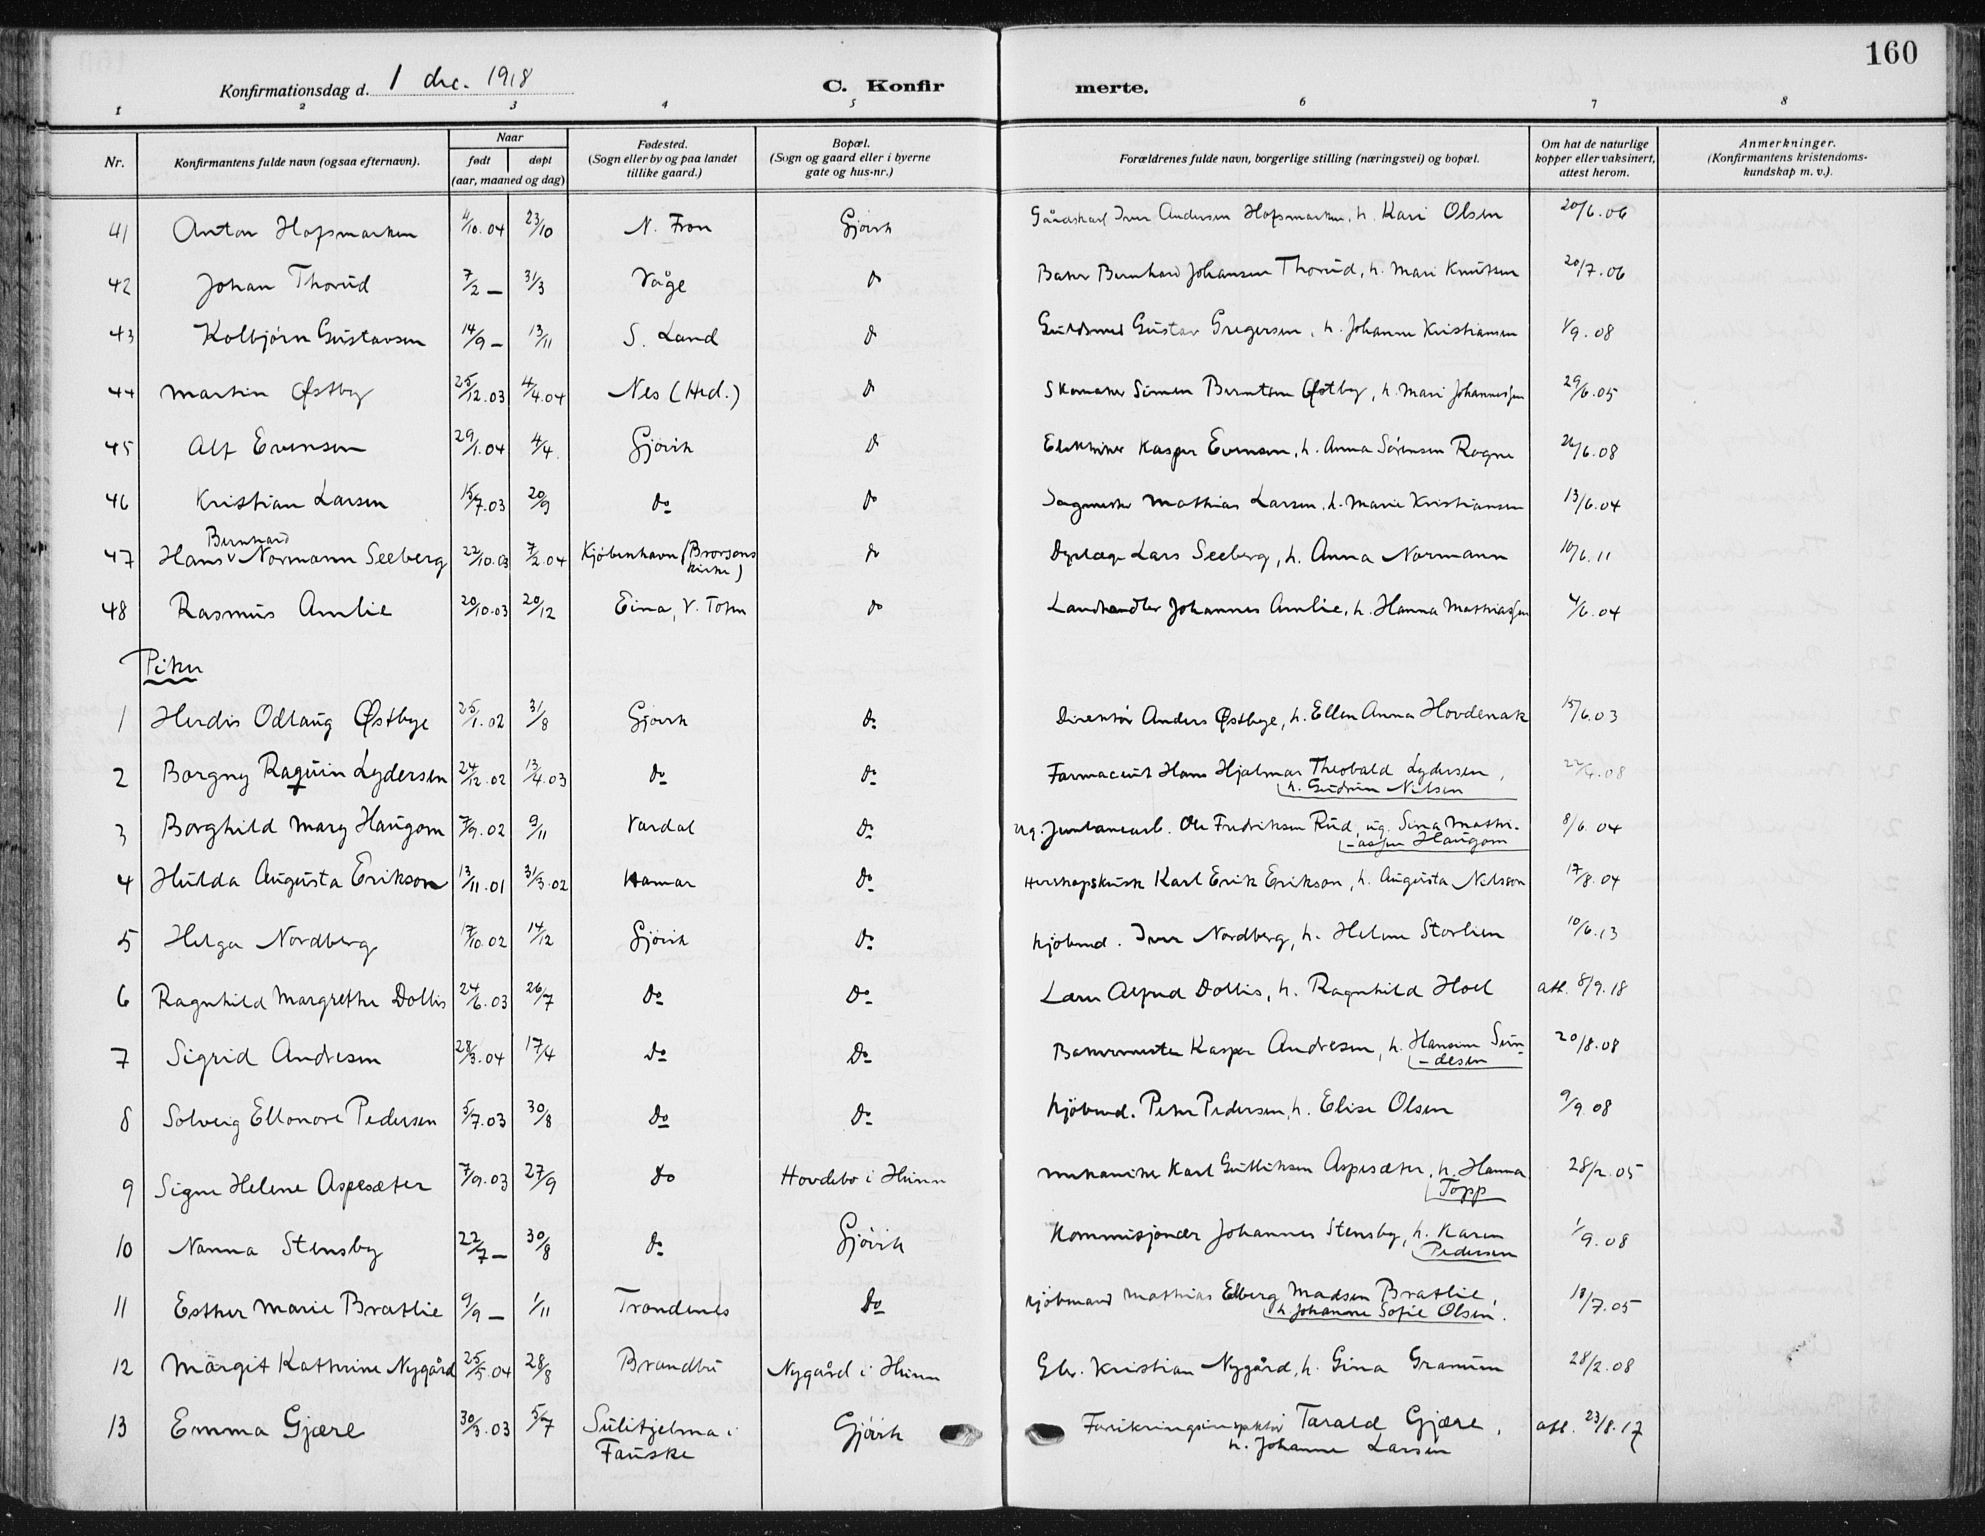 160
Konfirmationsdag d. 1 dec. 1918 C. Konfirmerte.
1 2 3 4 5 6 7 8
Nr. Konfirmantens fulde navn (ogsaa efternavn). Naar født døpt (aar, maaned og dag) Fødested. (Sogn eller by og paa landet tillike gaard.) Bopæl. (Sogn og gaard eller i byerne gate og hus-nr.) Forældrenes fulde navn, borgerlige stilling (næringsvei) og bopæl. Om hat de naturlige kopper eller vaksinert, attest herom. Anmerkninger. (Konfirmantens kristendoms-kundskap m. v.).
41 Anton Hofsmarken 4/10.04 23/10 N. Fron Gjøvik Gårdskarl Iver Andersen Hofsmarken, h. Kari Olsen 20/6.06
42 Johan Thorud 7/2 — 31/3 Våge do Baker Bernhard Johansen Thorud, h. Mari Knutsen 20/7.06
43 Kolbjørn Gustavsen 14/9 — 13/11 S. Land do Guldsmed Gustav Gregersen, h. Johanne Kristiansen 1/9.08
44 Martin Østby 25/12.03 4/4.04 Nes (Hed.) do Skomaker Simen Berntsen Østby, h. Mari Johannessen 29/6.05
45 Alf Evensen 29/1.04 4/4 Gjøvik do Elektriker Kasper Evensen, h. Anna Sørensen Rogne 26/6.08
46 Kristian Larsen 15/7.03 20/9 do do Sagmester Mathias Larsen, h. Marie Kristiansen 13/6.04
47 Hans Bernhard Normann Seeberg 22/10.03 7/2.04 Kjøbenhavn (Brorsons kirke) do Dyrlæge Lars Seeberg, h. Anna Normann 10/6.11
48 Rasmus Amlie 20/10.03 20/12 Eina, V. Toten do Landhandler Johannes Amlie, h. Hanna Mathiassen 4/6.04
Piker
1 Herdis Odlaug Østbye 25/1.02 31/8 Gjøvik do Direktør Anders Østbye, h. Ellen Anna Hovdenak 15/6.03
2 Borgny Raguin Lydersen 24/12.02 13/4.03 do do Farmaceut Hans Hjalmar Theobald Lydersen, h. Gudrun Nilsen 22/4.08
3 Borghild Mary Haugom 7/9.02 9/11 Vardal do Ug. Jernbanearb. Ole Fredriksen Rud, ug. Sina Mathi-assen Haugom 8/6.04
4 Hulda Augusta Erikson 13/11.01 31/3.02 Hamar do Herskapskusk Karl Erik Erikson, h. Augusta Nilsson 17/8.04
5 Helga Nordberg 17/10.02 14/12 Gjøvik do Kjøbmd. Iver Nordberg, h. Helene Storlien 10/6.13
6 Ragnhild Margrethe Dollis 24/6.03 26/7 do do Lærer Alfred Dollis, h. Ragnhild Hoel att. 8/9.18
7 Sigrid Andresen 28/3.04 17/4 do do Bakermester Kasper Andresen, h. Hansine Sun-desen 20/8.08
8 Solveig Ellonore Pedersen 5/7.03 30/8 do do Kjøbmd. Peter Pedersen, h. Elise Olsen 9/9.08
9 Signe Helene Aspesæter 7/9.03 27/9 do Hovdebo i Hunn Mekaniker Karl Gulliksen Aspesæter, h. Hanna Topp 28/2.05
10 Nanna Stensby 22/7 — 30/8 do Gjøvik Kommisjonær Johannes Stensby, h. Karen Pedersen 1/9.08
11 Esther Marie Bratlie 9/9 — 1/11 Trondenes do Kjøbmand Mathias Elberg Madsen Bratlie, h. Johanne Sofie Olsen. 18/7.05
12 Margit Kathrine Nygård 25/5.04 28/8 Brandbu Nygård i Hunn Gbr. Kristian Nygård, h. Gina Granum 28/2.08
13 Emma Gjære 30/3.03 5/7 Sulitjelma i Fauske Gjøvik Forsikringsinspektør Tarald Gjære, h. Johanne Larsen att. 23/8.17